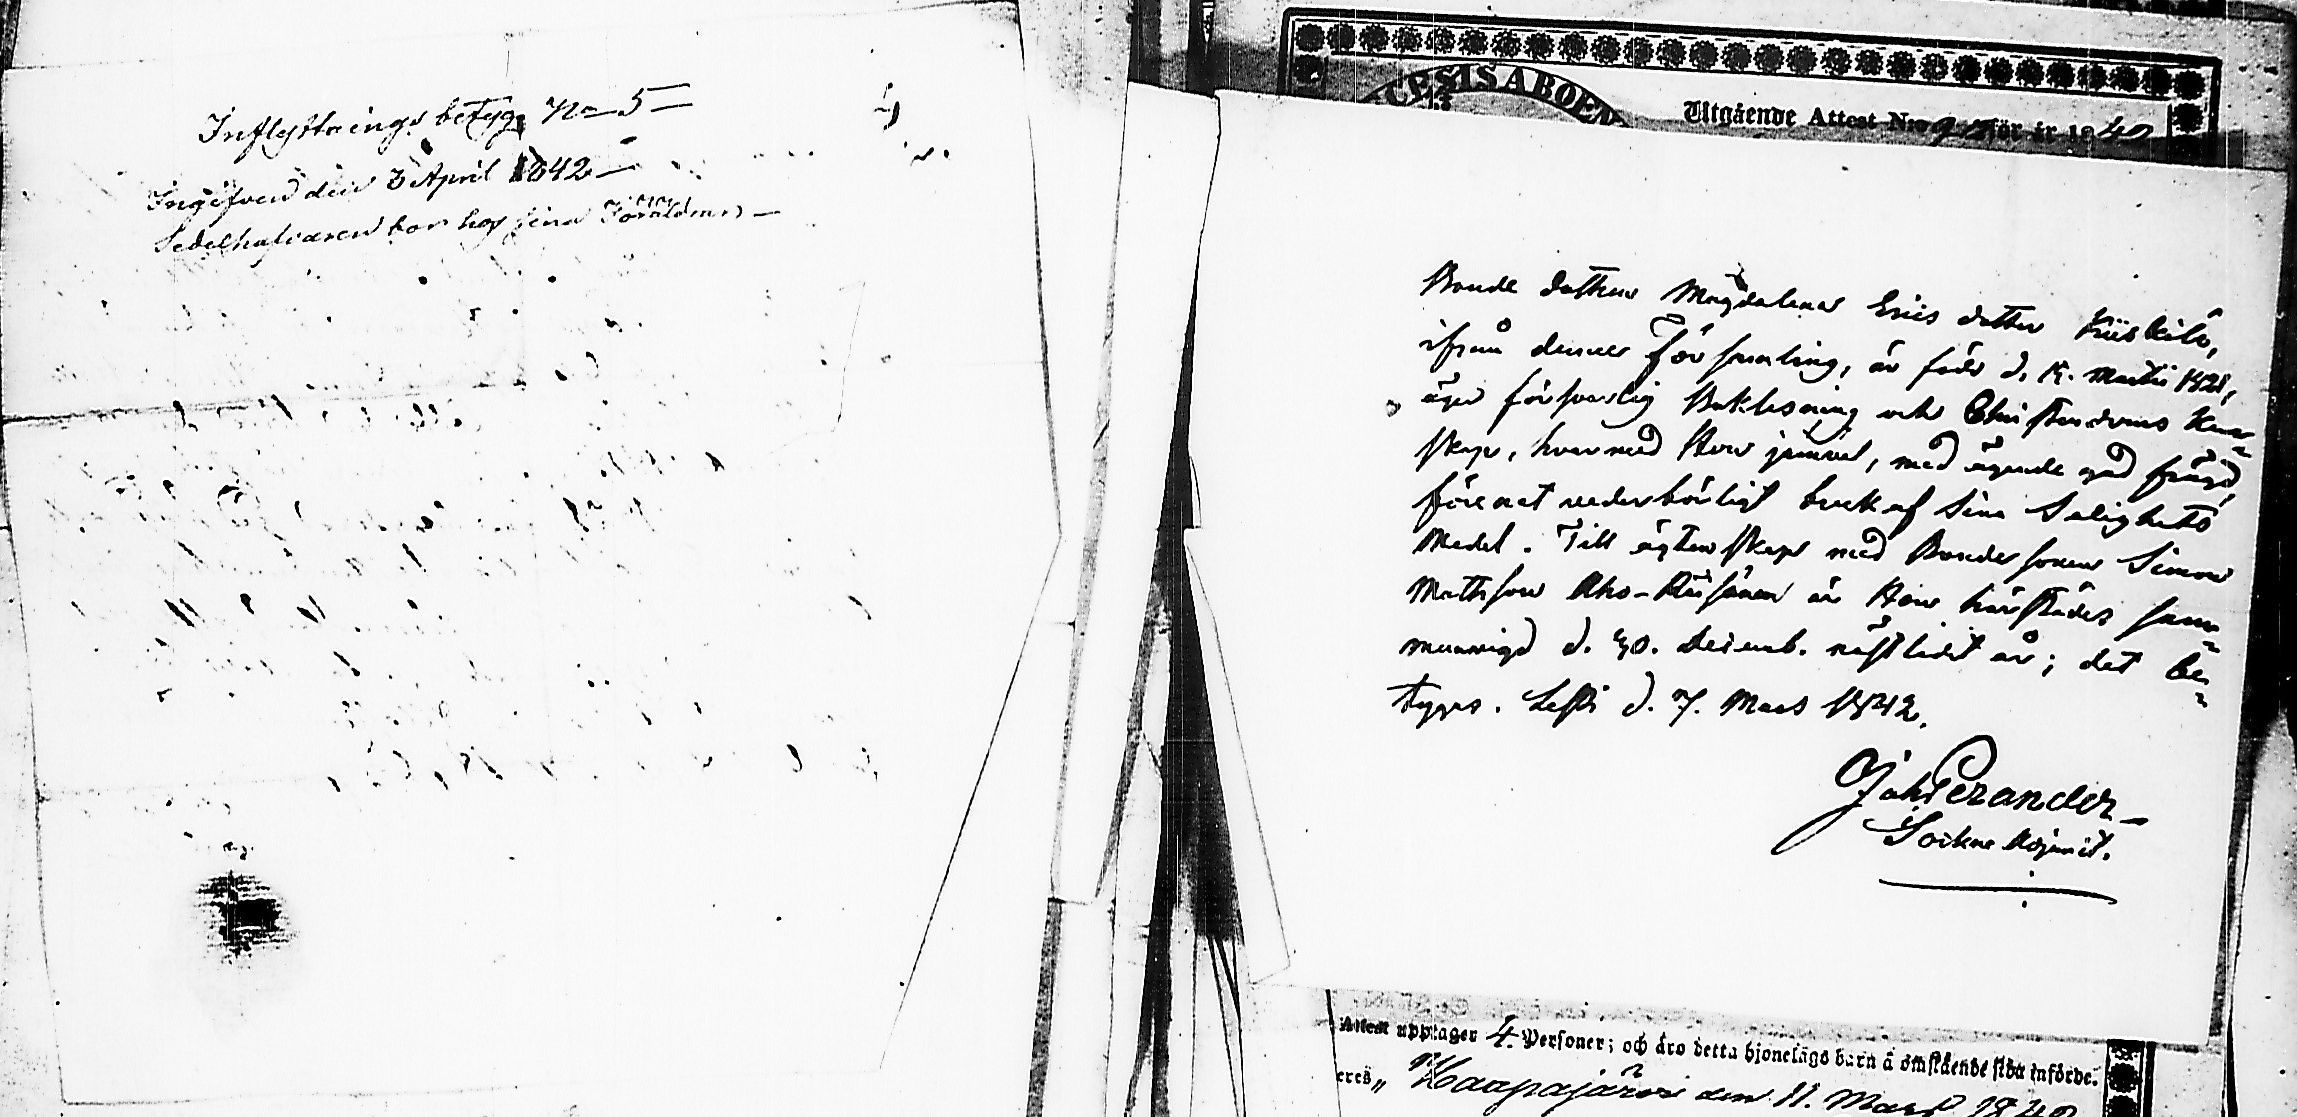 Inflyttnings betyg No 5
Ingifven den 3 April 1842
Sedelhafvaren bor hos sina Föräldrar
Utgående Attest N:o för år 1842
Bonde dottren Magdalena Erics dotter Kiiskilä,
ifrån denna Församling, är född d. Martii 1821,
äger försvarlig Boklesning och Christendoms Kun-
skap, hvarmed Hon jämväl, med ägande god frägd,
förenat vederbörligt bruk af sina Salighets
Medel. Till ägtenskap med Bondesonen Simon
Mathsson Aho-Räisänen är Hon härstädes sam-
manvigd d. 30. Decemb. nästledit år; det be-
tygas. Lesti d. 7. Mars 1842.
Joh Perander
Sockne Adjunct.
Attest upptager 4. Personer; och äro detta hjonelags barn å omstående sida införde.
eres„ Haapajärvi den 11. Mars 1842